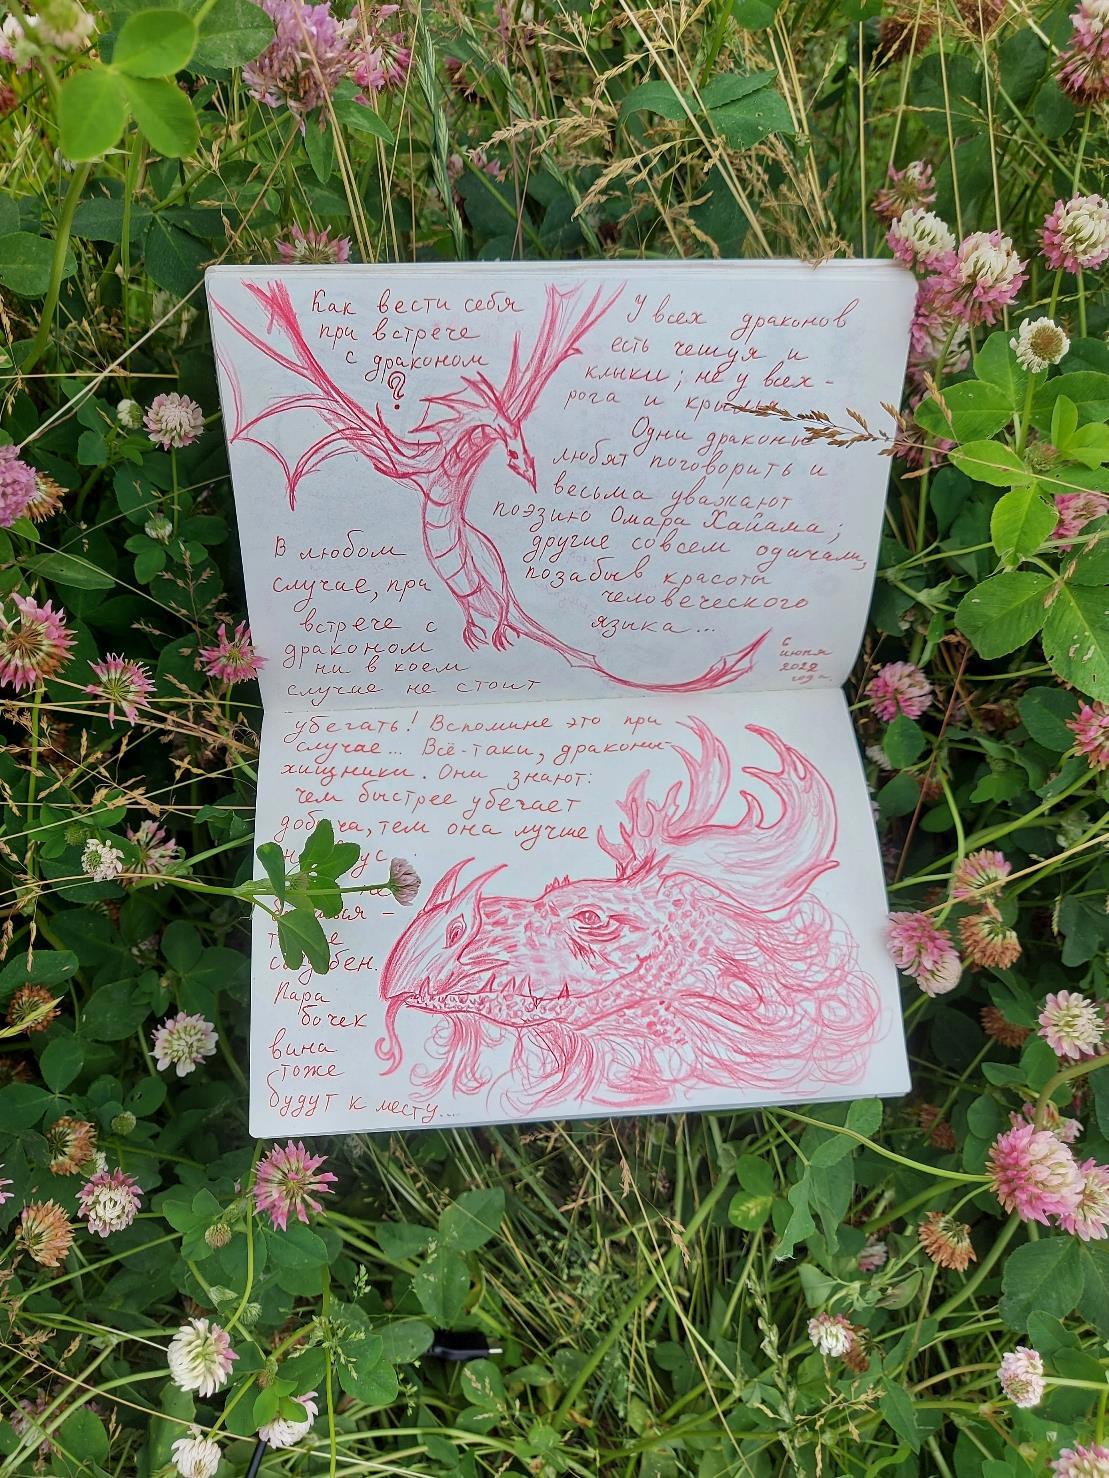 Как вести себя
при встрече
с драконом
?
У всех драконов
есть чешуя и
клыки; не у всех -
рога и крылья.
Одни драконы
любят поговорить и
весьма уважают
поэзию Омара Хайама;
другие совсем одичали,
позабыв красоты
человеческого
языка...
6
июля
2020
год.
В любом
случае, при
встрече с
драконом
ни в коем
случае не стоит
убегать! Вспомине это при
случае... Всё-таки, драконы-
хищники. Они знают:
чем быстрее убегает
добыча, тем она лучше
Пара
бочек
вина
тоже
будут к месту...